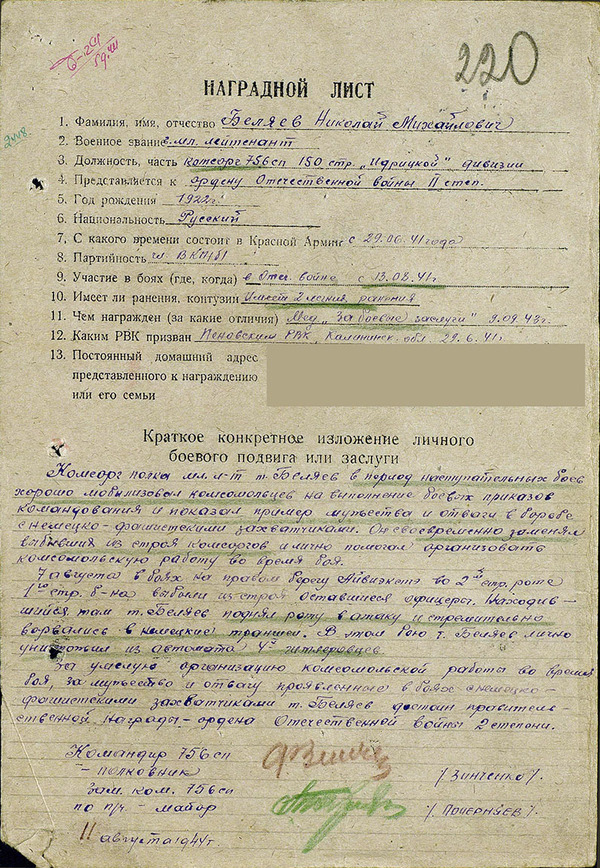 220
НАГРАДНОЙ ЛИСТ
1. Фамилия, имя, отчество Беляев Николай Михайлович
2. Военное звание мл. лейтенант
3. Должность, часть комсорг 756сп 150 стр. „Идрицкой" дивизии
4. Представляется к ордену Отечественной войны II степ.
5. Год рождения 1922г.
6. Национальность Русский
7. С какого времени состоит в Красной Армии с 29.06.41 года
8. Партийность чл. ВКП/б/
9. Участие в боях (где, когда) в Отеч. войне с 13.08.41г.
10. Имеет ли ранения, контузии Имеет 2 легких ранения
11. Чем награжден (за какие отличия) Мед. „За боевые заслуги" 9.09.43г.
12. Каким РВК призван Пеновским РВК, Калининск. обл. 29.6.41г.
13. Постоянный домашний адрес
представленного к награждению
или его семьи
Краткое конкретное изложение личного
боевого подвига или заслуги
Комсорг полка мл. л-т т. Беляев в период наступательных боев
хорошо мобилизовал комсомольцев на выполнение боевых приказов
командования и показал пример мужества и отваги в борьбе
с немецко-фашистскими захватчиками. Он своевременно заменял
выбывших из строя комсоргов и лично помогал организовать
комсомольскую работу во время боя.
7 августа в боях на правом берегу Айвиэкстэ во 2й стр. роте
1го стр. б-на выбыли из строя оставшиеся офицеры. Находив-
шийся там т. Беляев поднял роту в атаку и стремительно
ворвались в немецкие траншеи. В этом бою т. Беляев лично
уничтожил из автомата 4х гитлеровцев.
За умелую организацию комсомольской работы во время
боя, за мужество и отвагу проявленные в боях с немецко-
фашистскими захватчиками т. Беляев достоин правитель-
ственной Награды - ордена Отечественной войны 2 степени.
Командир 756сп
- полковник /Зинченко/.
Зам. ком. 756сп
по п/ч - майор /Почерняев/.
11 августа 1944г.